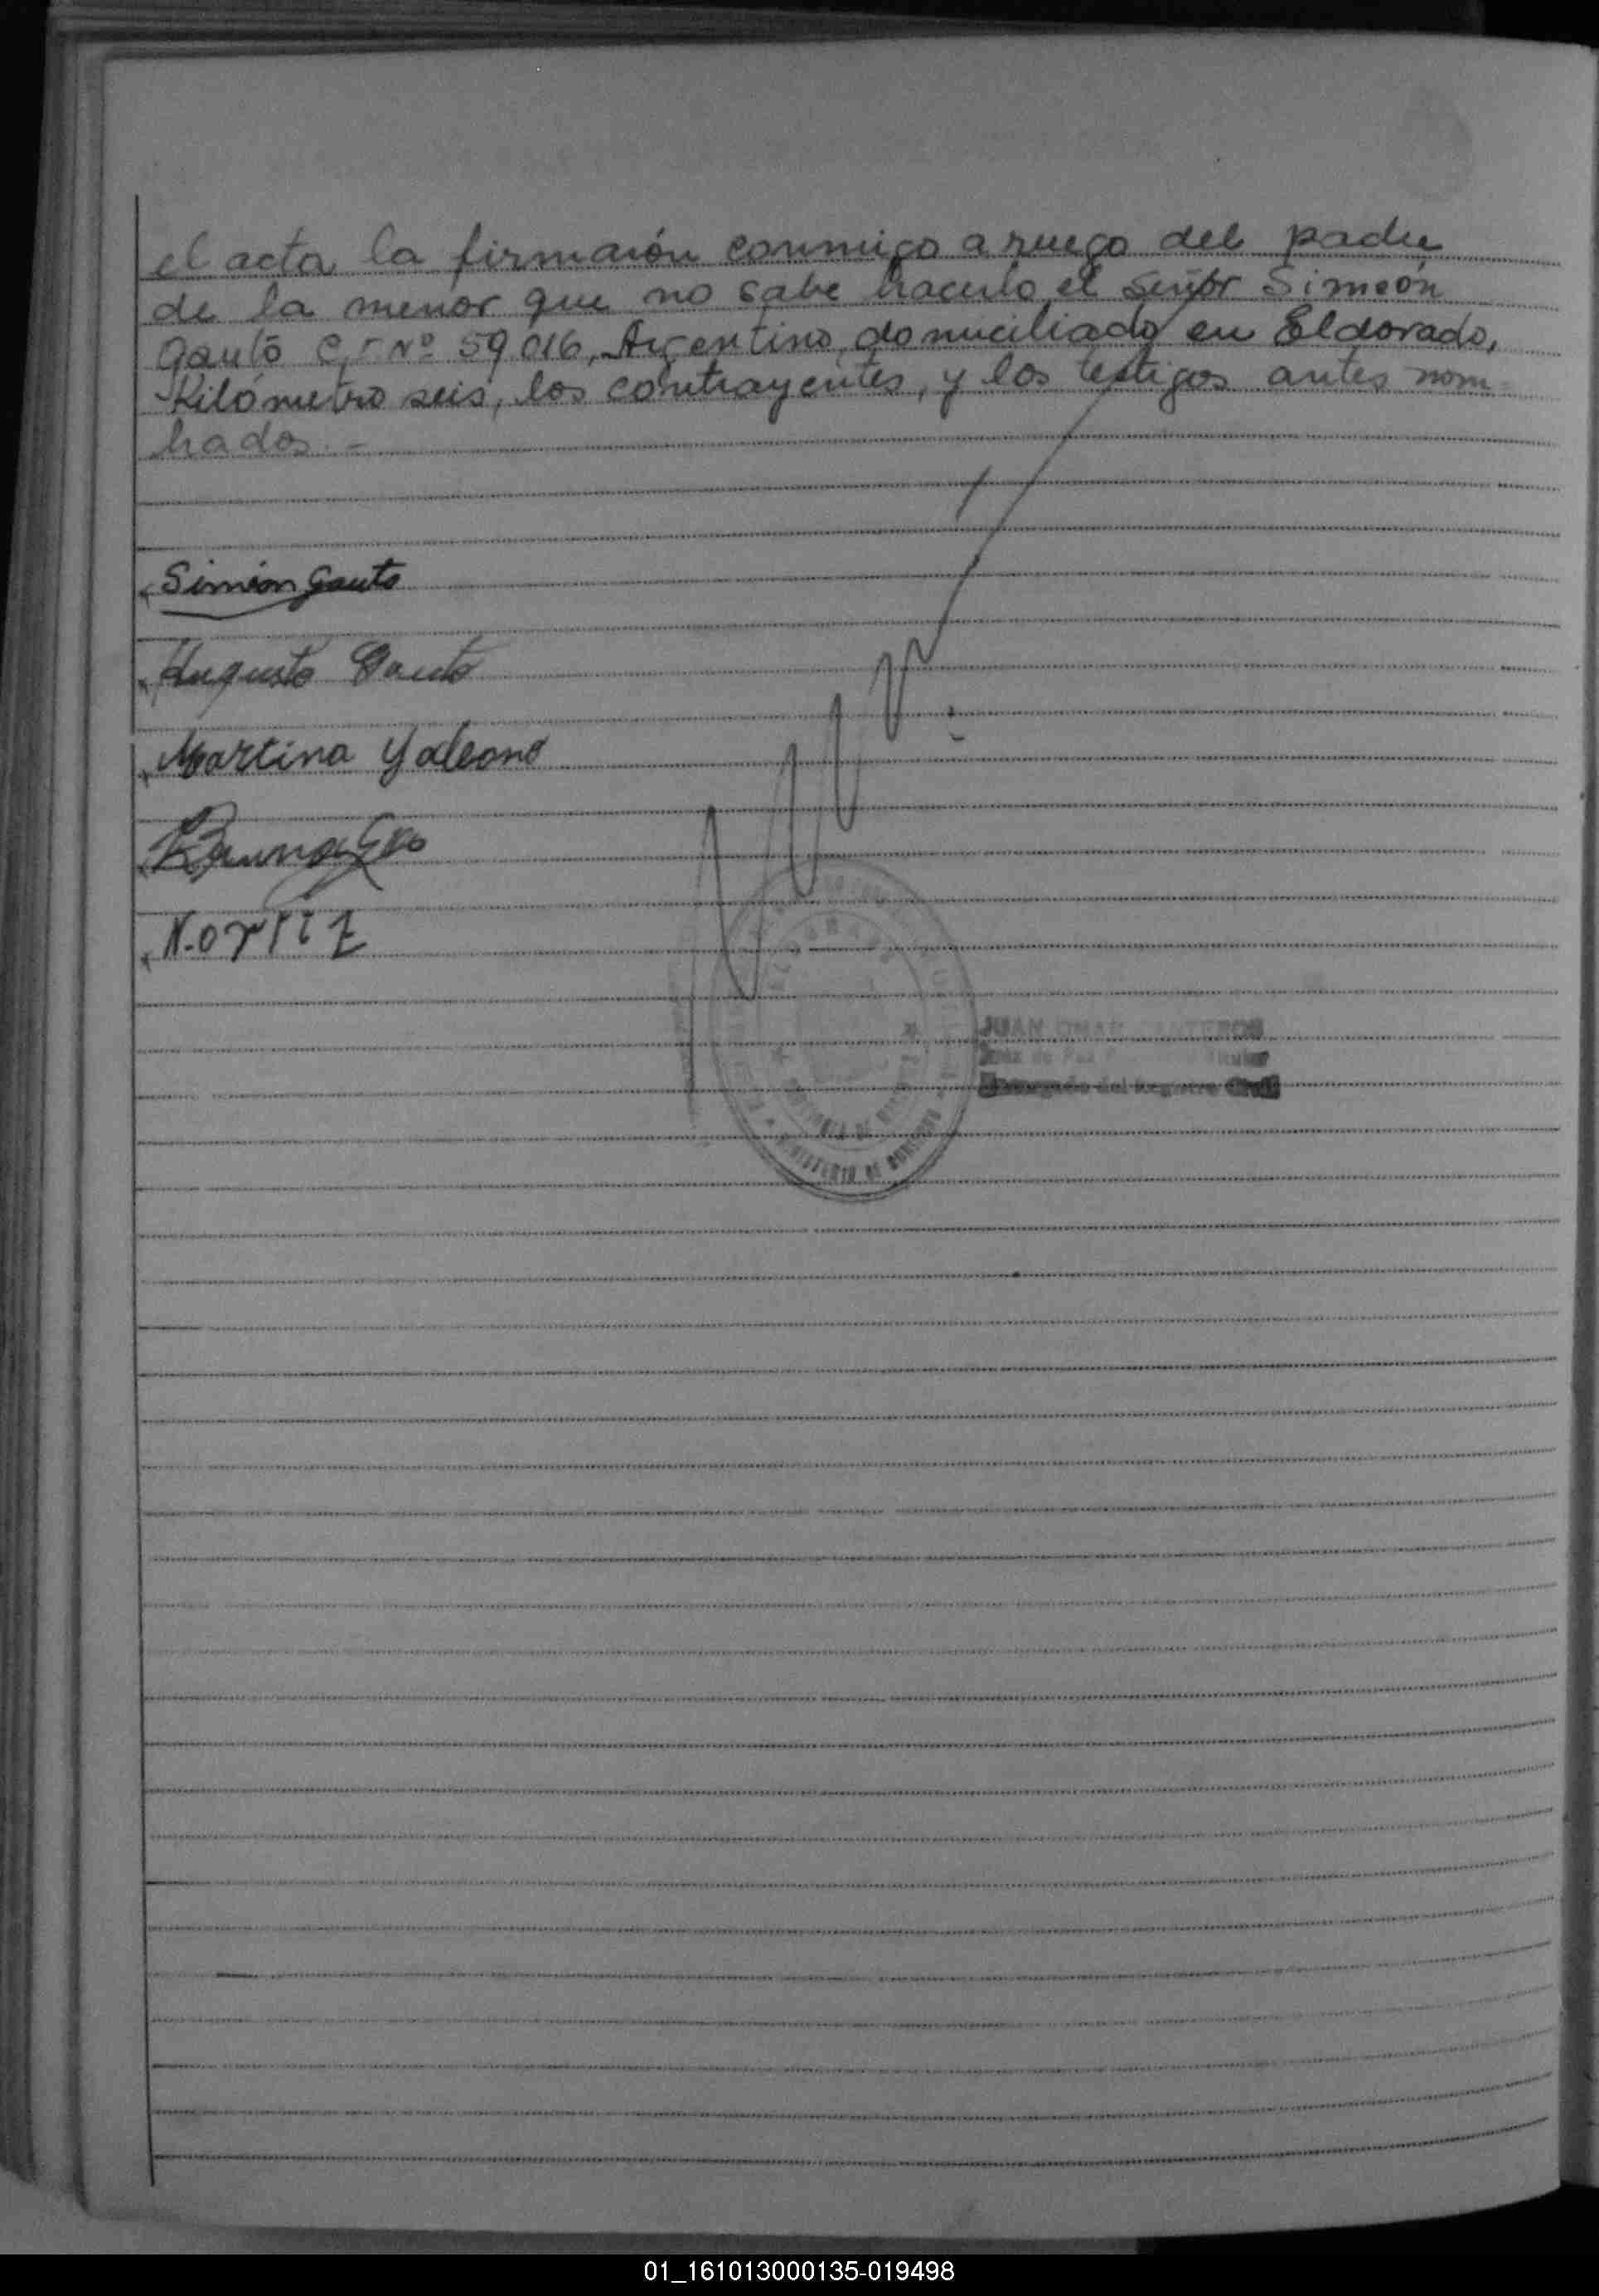 el acta la firmaron conmigo a ruego del padre
de la menor que no sabe hacerlo el Señor Simeón
Gauto C.I. Nº 59016, Argentino, domiciliado en Eldorado,
Kilómetro seis, los contrayentes, y los testigos antes nom=
brados.-
Simeon Gauto
Augusto Gauto
Martina Galeano
N. ortiz
JUAN OMAR CANTEROS
Juez de Paz Titular
Encargado del Registro Civil
01_161013000135-019498